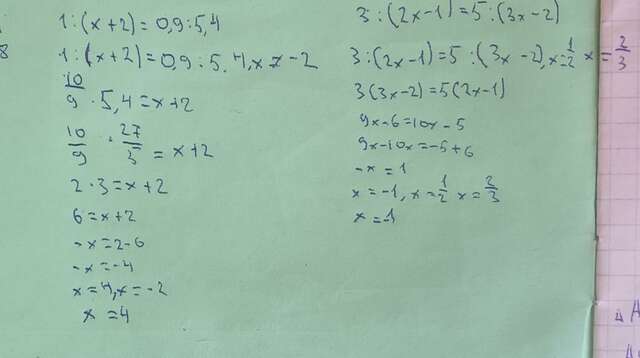 1:(x+2)=0,9:5,4
8
1:(x+2)=0,9:5.4, x≠-2
10/9 · 5,4=x+2
10/9 · 27/5 = x+2
2·3=x+2
6=x+2
-x=2-6
-x=-4
x=4, x=-2
x=4
3:(2x-1)=5:(3x-2)
3:(2x-1)=5:(3x-2), x=1/2 x=2/3
3(3x-2)=5(2x-1)
9x-6=10x-5
9x-10x=-5+6
-x=1
x=-1, x=1/2 x=2/3
x=-1